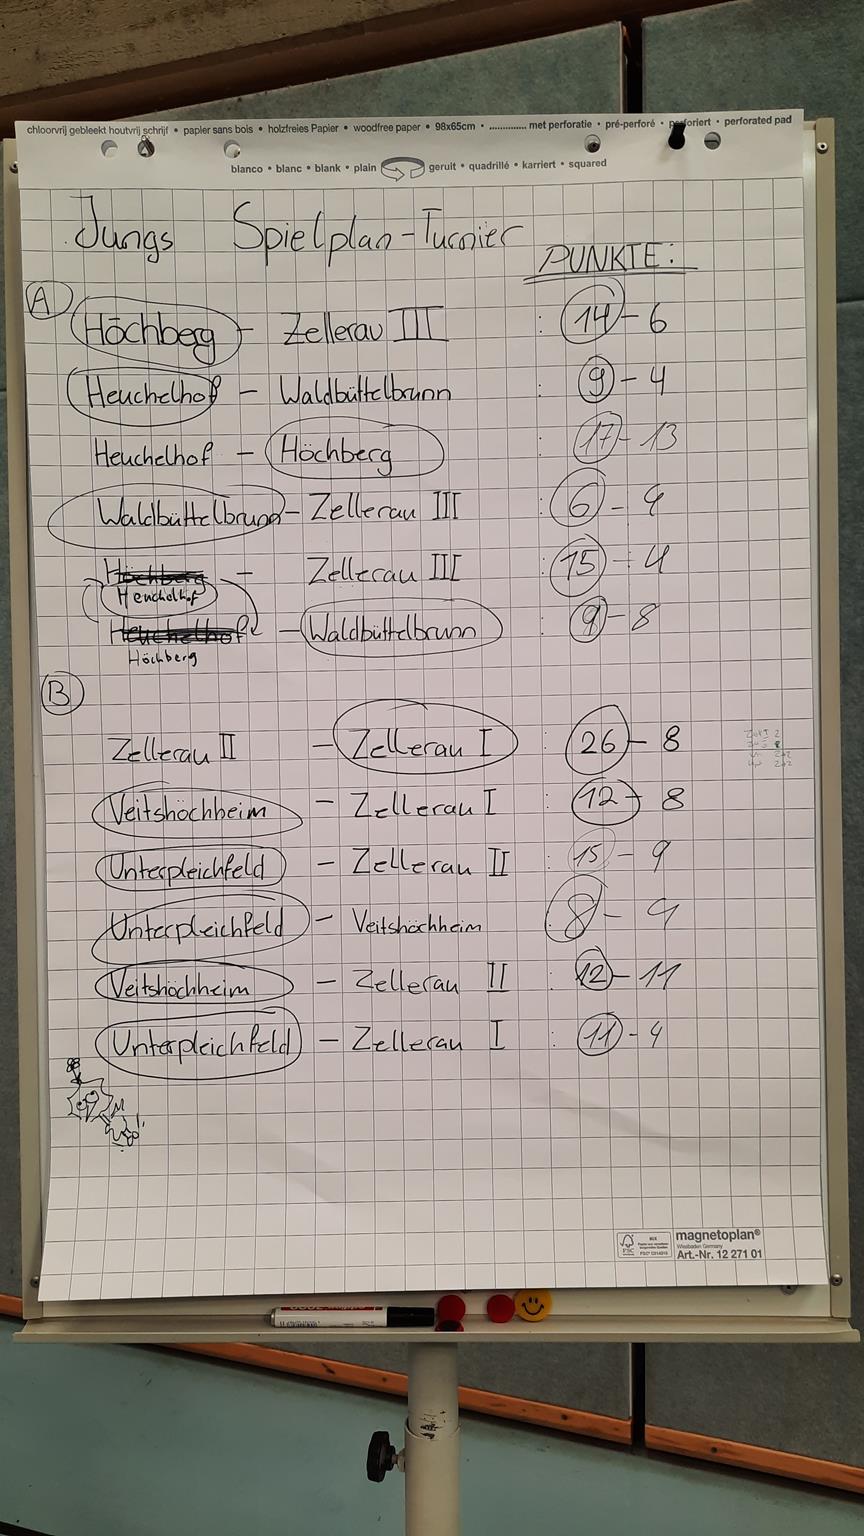 chloorvrij gebleekt houtvrij schrijf • papier sans bois • holzfreies Papier • woodfree paper • 98x65cm • .............. met perforatie • pré-perforé • perforiert • perforated pad
blanco • blanc • blank • plain geruit • quadrillé • karriert • squared
Jungs Spielplan-Turnier
PUNKTE:
A
Höchberg - Zellerau III : 14 - 6
Heuchelhof - Waldbüttelbrunn : 9 - 4
Heuchelhof - Höchberg : 17 - 13
Waldbüttelbrunn - Zellerau III : 6 - 4
Höchberg - Zellerau III : 15 - 4
Heuchelhof
Heuchelhof - Waldbüttelbrunn : 9 - 8
Höchberg
B
Zellerau II - Zellerau I : 26 - 8
Veitshöchheim - Zellerau I : 12 - 8
Unterpleichfeld - Zellerau II : 15 - 9
Unterpleichfeld - Veitshöchheim : 8 - 4
Veitshöchheim - Zellerau II : 12 - 11
Unterpleichfeld - Zellerau I : 11 - 4
FSC
MIX
magnetoplan®
Wiesbaden Germany
Art.-Nr. 12 271 01